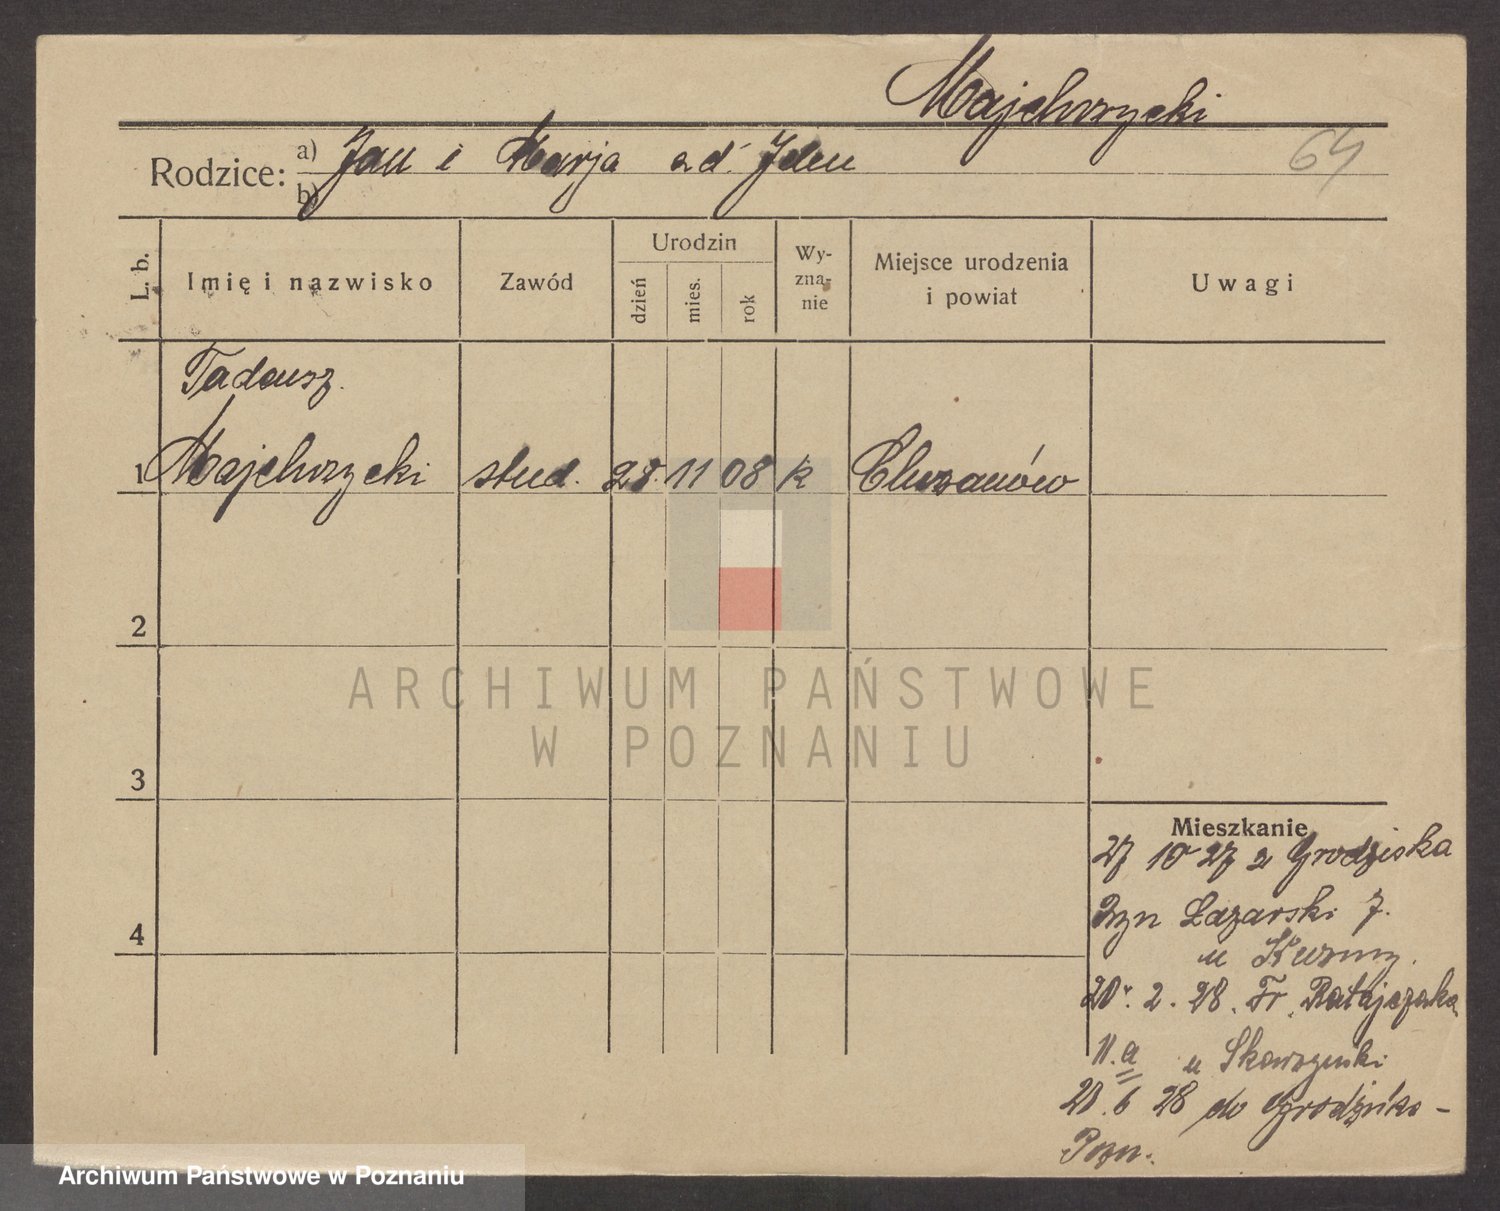 Majchrzycki
64
Rodzice: a) Jan i Marja z d. Iden
b)
L. b. Imię i nazwisko Zawód Urodzin dzień mies. rok Wyznanie Miejsce urodzenia i powiat Uwagi
Tadeusz
1 Majchrzycki stud. 28. 11 08 k Chrzanów
2
3
4
ARCHIWUM PAŃSTWOWE
W POZNANIU
Mieszkanie
27 10 27 z Grodziska
Pzn Łazarski J.
u Kuzmy.
20. 2. 28. Fr. Ratajczaka
11.a u Skowrzyński
20. 6 28 do Grodziska -
Pozn.
Archiwum Państwowe w Poznaniu